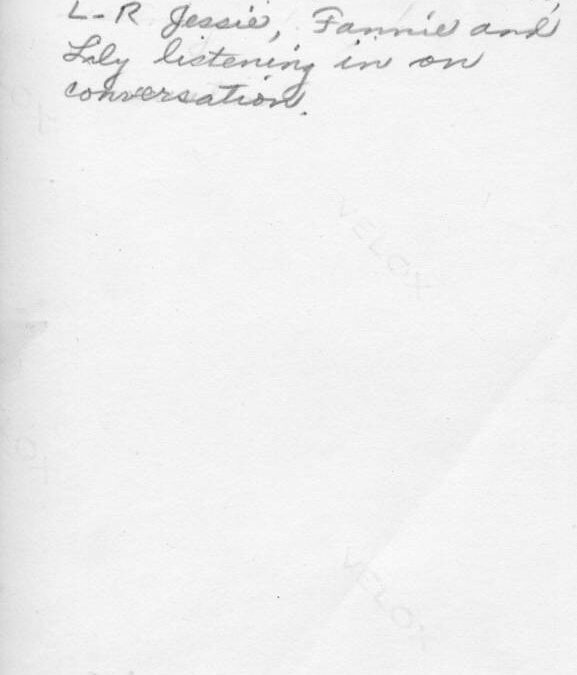 L-R Jessie, Fannie and
Lily listening in on
conversation.
VELOX
VELOX